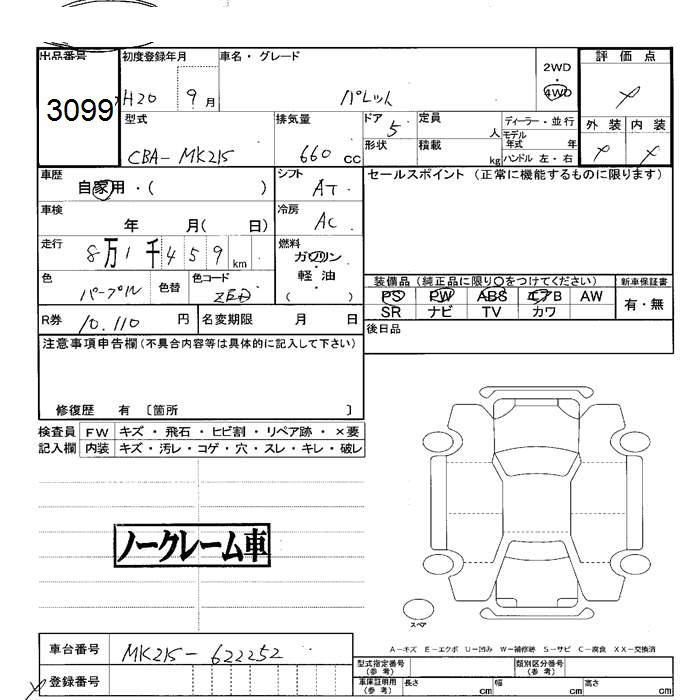 出品番号 初度登録年月 車名・グレード 2WD ・ 4WD 評価点
3099 H20 9月 パレット
型式 排気量 ドア 5 定員 人 ディーラー・並行 外装 内装
CBA-MK21S 660 cc 形状 積載 kg モデル年式 年 ハンドル 左・右
車歴 自家用・( ) シフト AT セールスポイント (正常に機能するものに限ります)
車検 年 月( 日) 冷房 AC
走行 8万1千459km 燃料 ガソリン
色 パープル 色替 色コード ZED 軽・油 ( )
装備品 (純正品に限り○をつけてください) 新車保証書
PS PW ABS エアB AW 有・無
SR ナビ TV カワ
R券 10,110 円 名変期限 月 日 後日品
注意事項申告欄(不具合内容等は具体的に記入して下さい)
修復歴 有 〔箇所 〕
検査員 FW キズ・飛石・ヒビ割・リペア跡・×要
記入欄 内装 キズ・汚レ・コゲ・穴・スレ・キレ・破レ
ノークレーム車
スペア
A-キズ E-エクボ U-凹み W-補修跡 S-サビ C-腐食 XX-交換済
車台番号 MK21S-622252
型式指定番号(参考) 類別区分番号(参考)
登録番号 車庫証明用(参考) 長さ cm 幅 cm 高さ cm